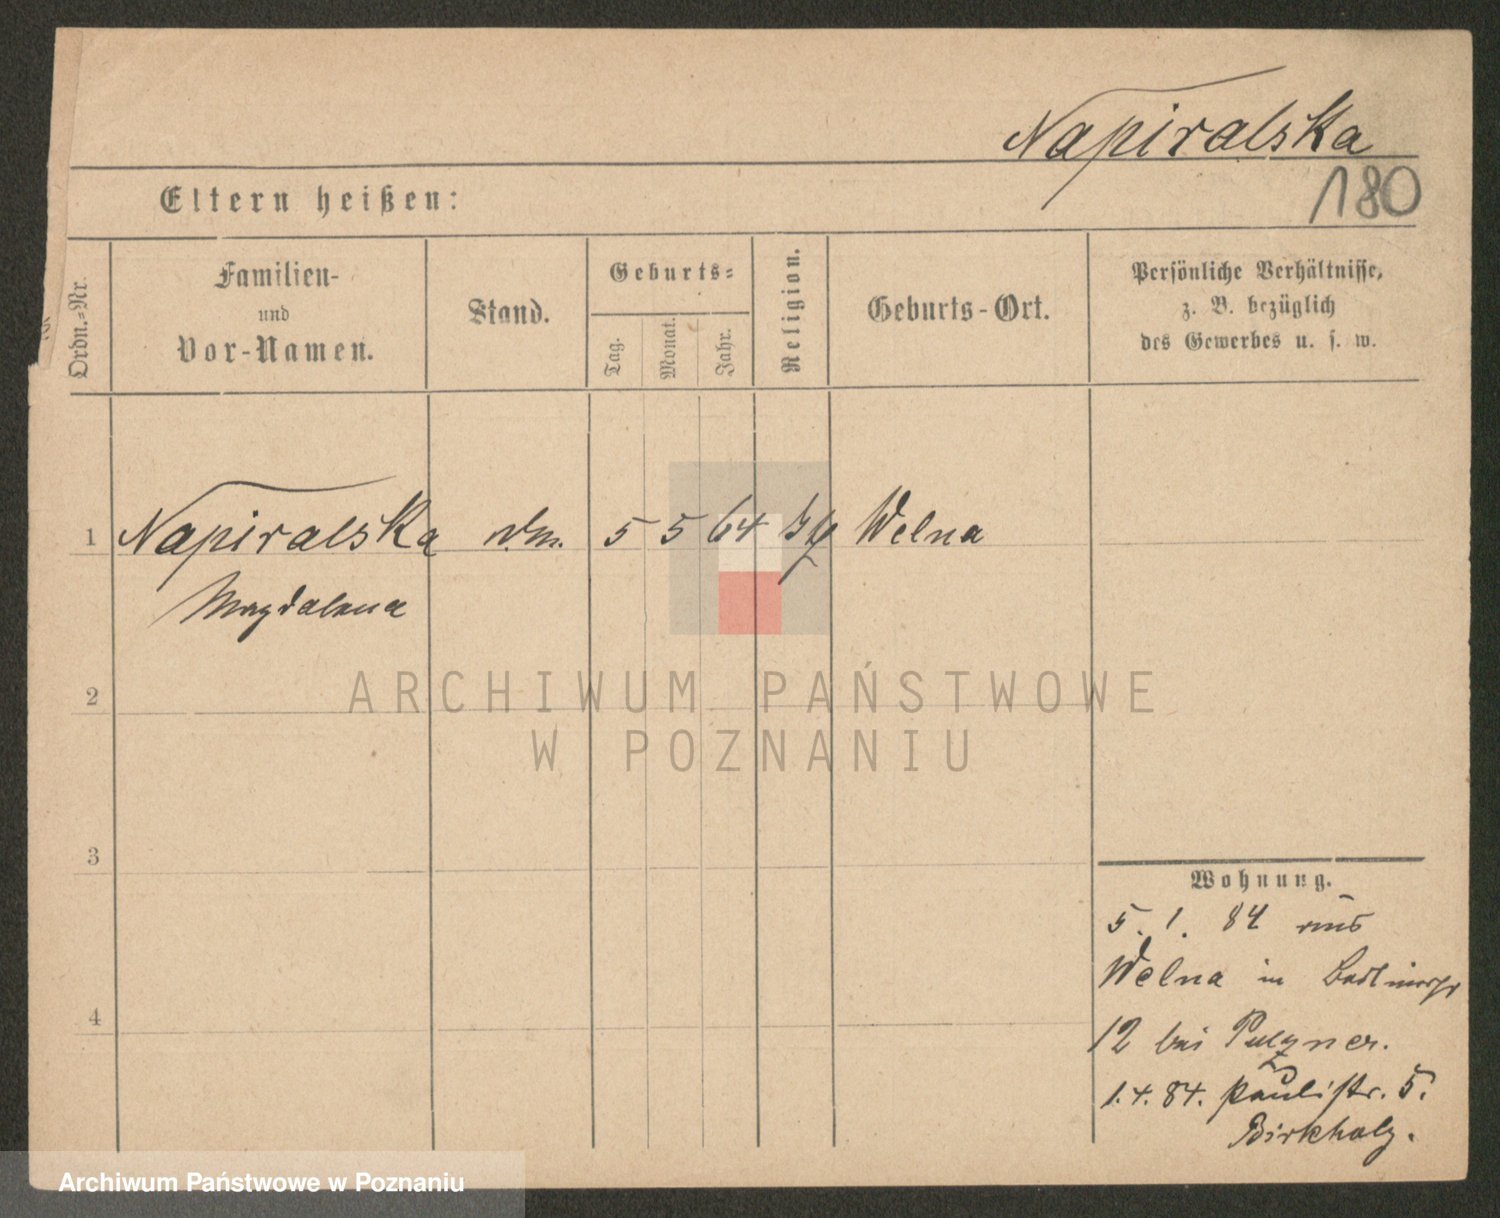 Napiralska
180
Eltern heißen:
Ordn.-Nr.
Familien-
und
Vor-Namen.
Stand.
Geburts-
Tag.
Monat.
Jahr.
Religion.
Geburts-Ort.
Persönliche Verhältnisse,
z. B. bezüglich
des Gewerbes u. s. w.
1 Napiralska 5 5 64 Welna
Magdalena
2
3
4
Wohnung.
5. 1. 84 aus
Welna in
12 bei
1.4.84. Paulistr. 5.
Birkholz.
ARCHIWUM PAŃSTWOWE
W POZNANIU
Archiwum Państwowe w Poznaniu